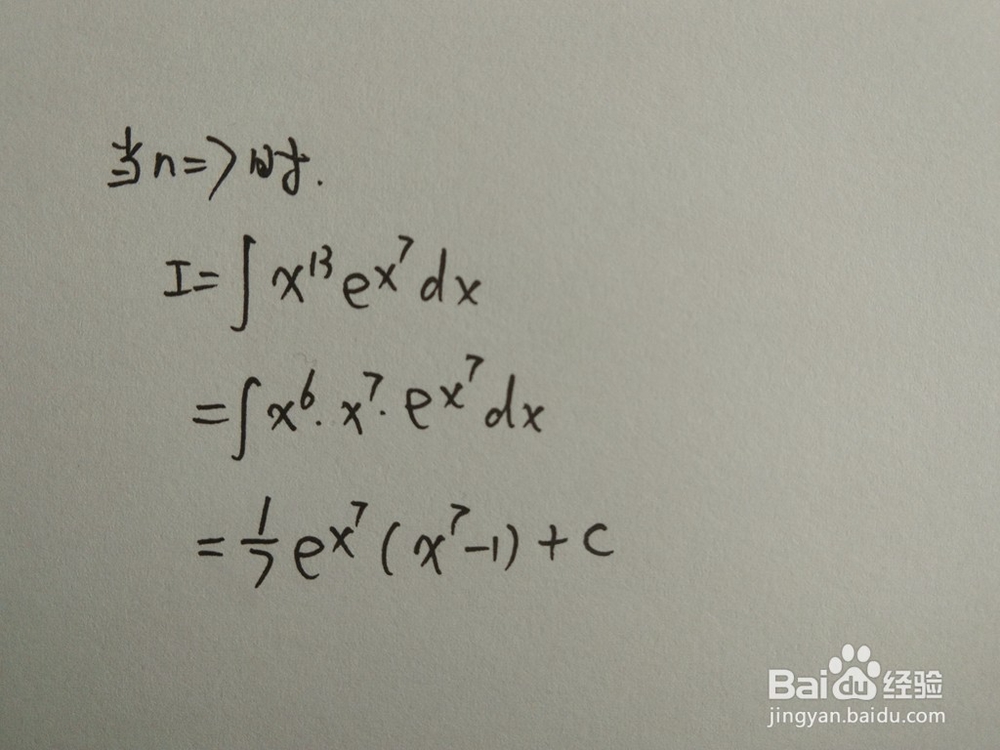 当n=7时.
I=∫x¹³eˣ⁷dx
=∫x⁶·x⁷·eˣ⁷dx
=1/7eˣ⁷(x⁷-1)+C
Baidu经验
jingyan.baidu.com